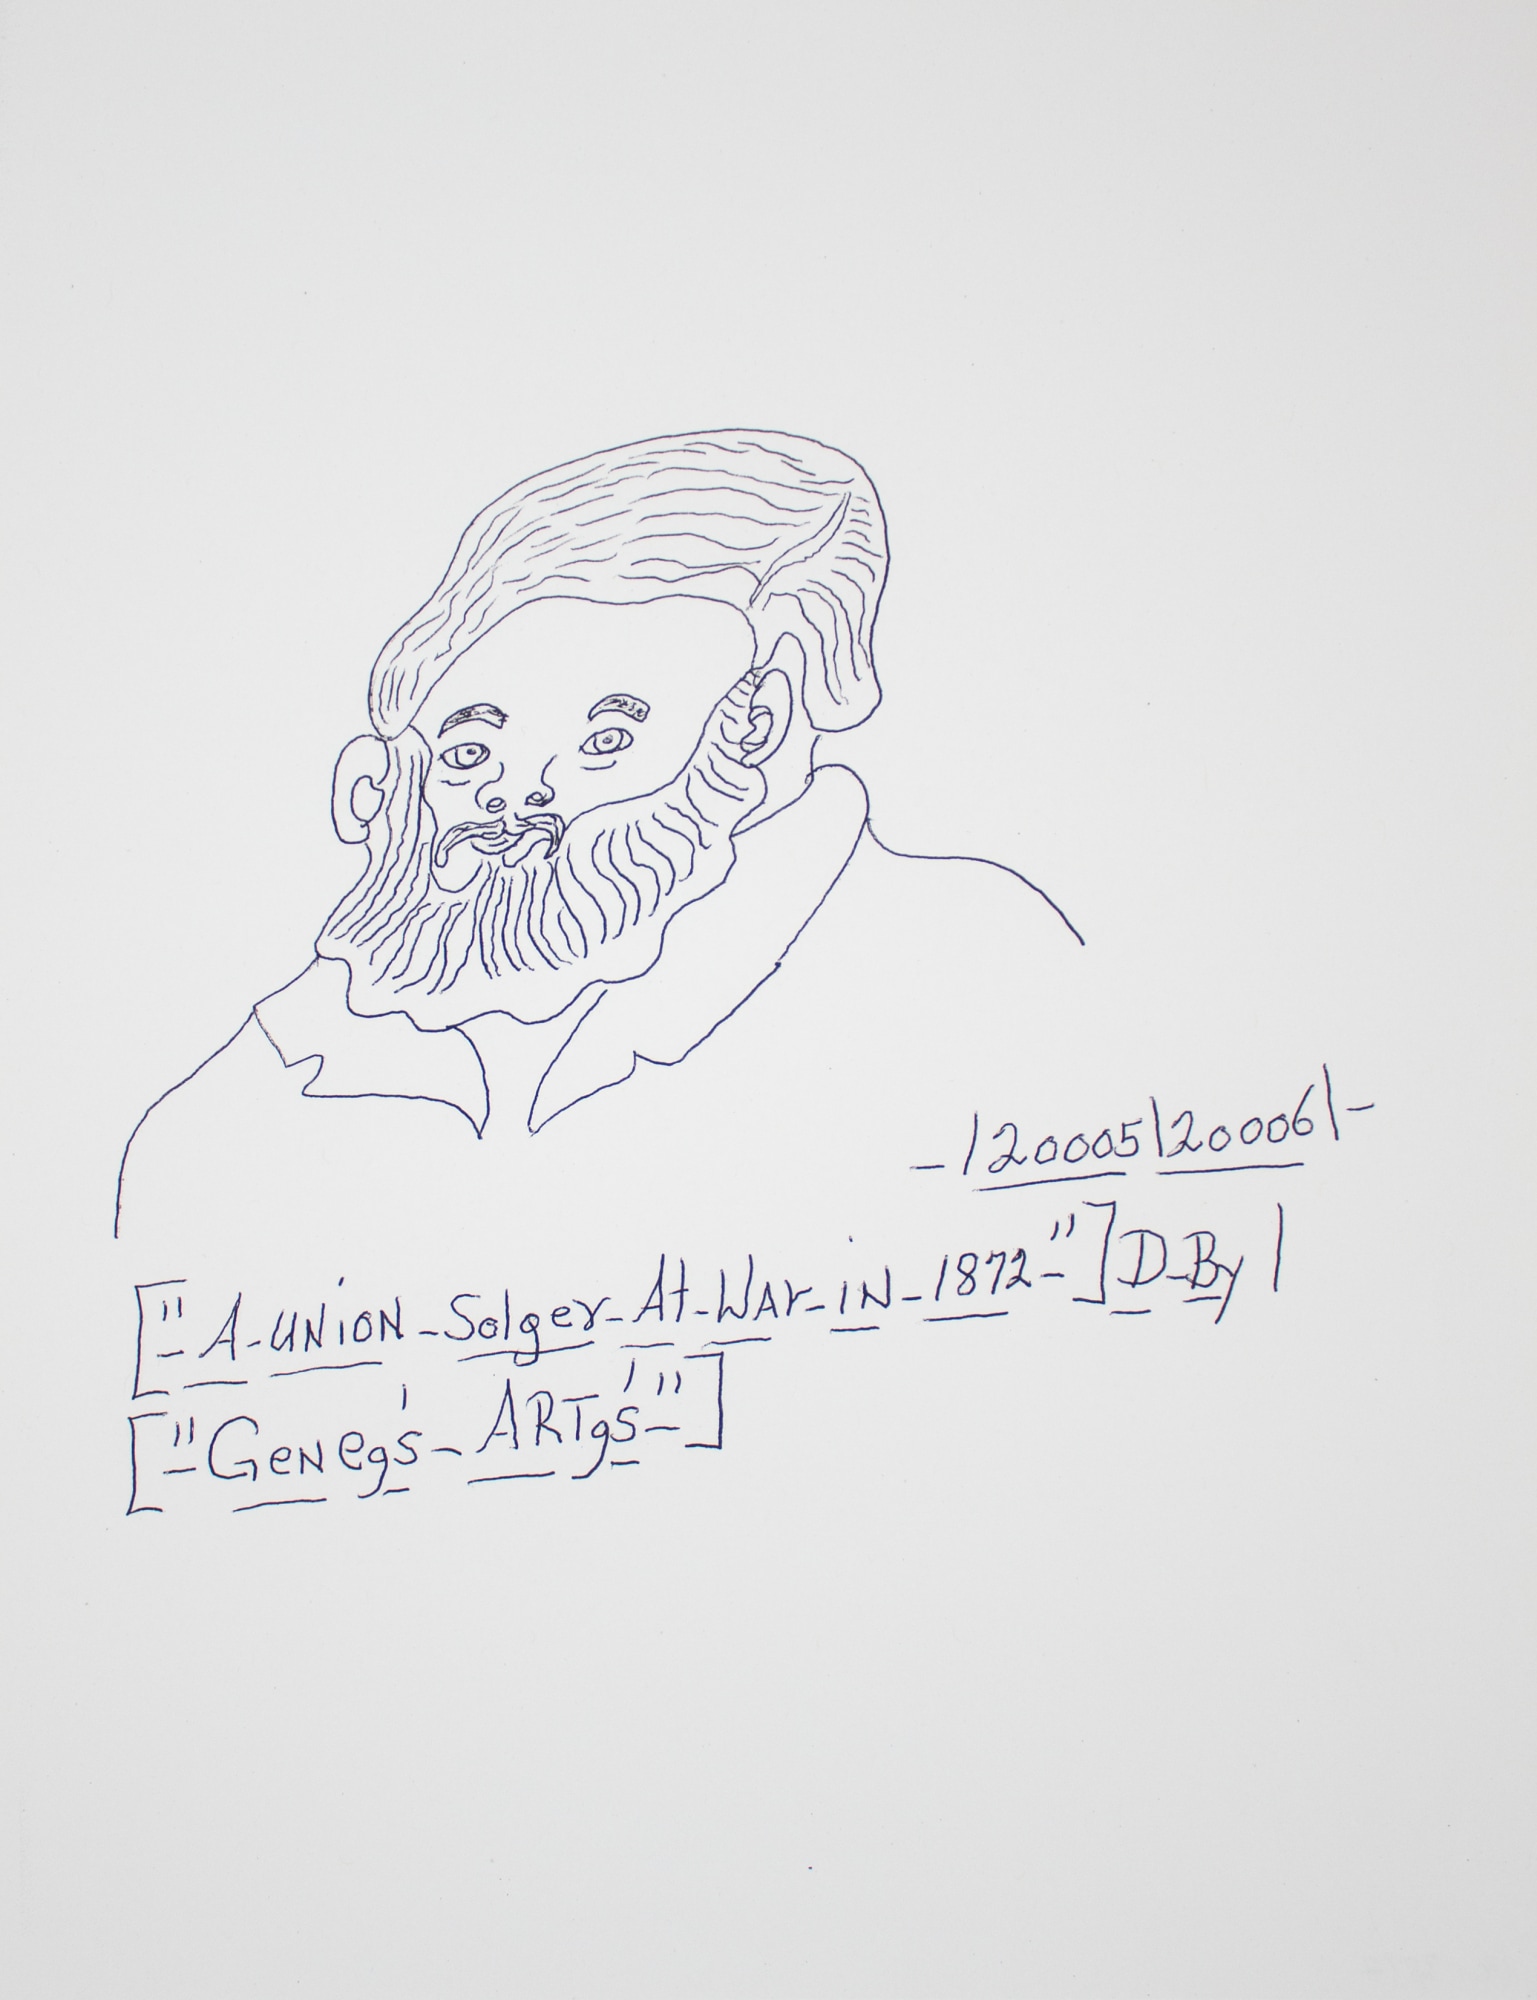 -/20005\20006\-
["-A-UNiON-Solger-At-WAr-iN-1872-"] D-By|
["-GeNeg's-ARTg's-"]